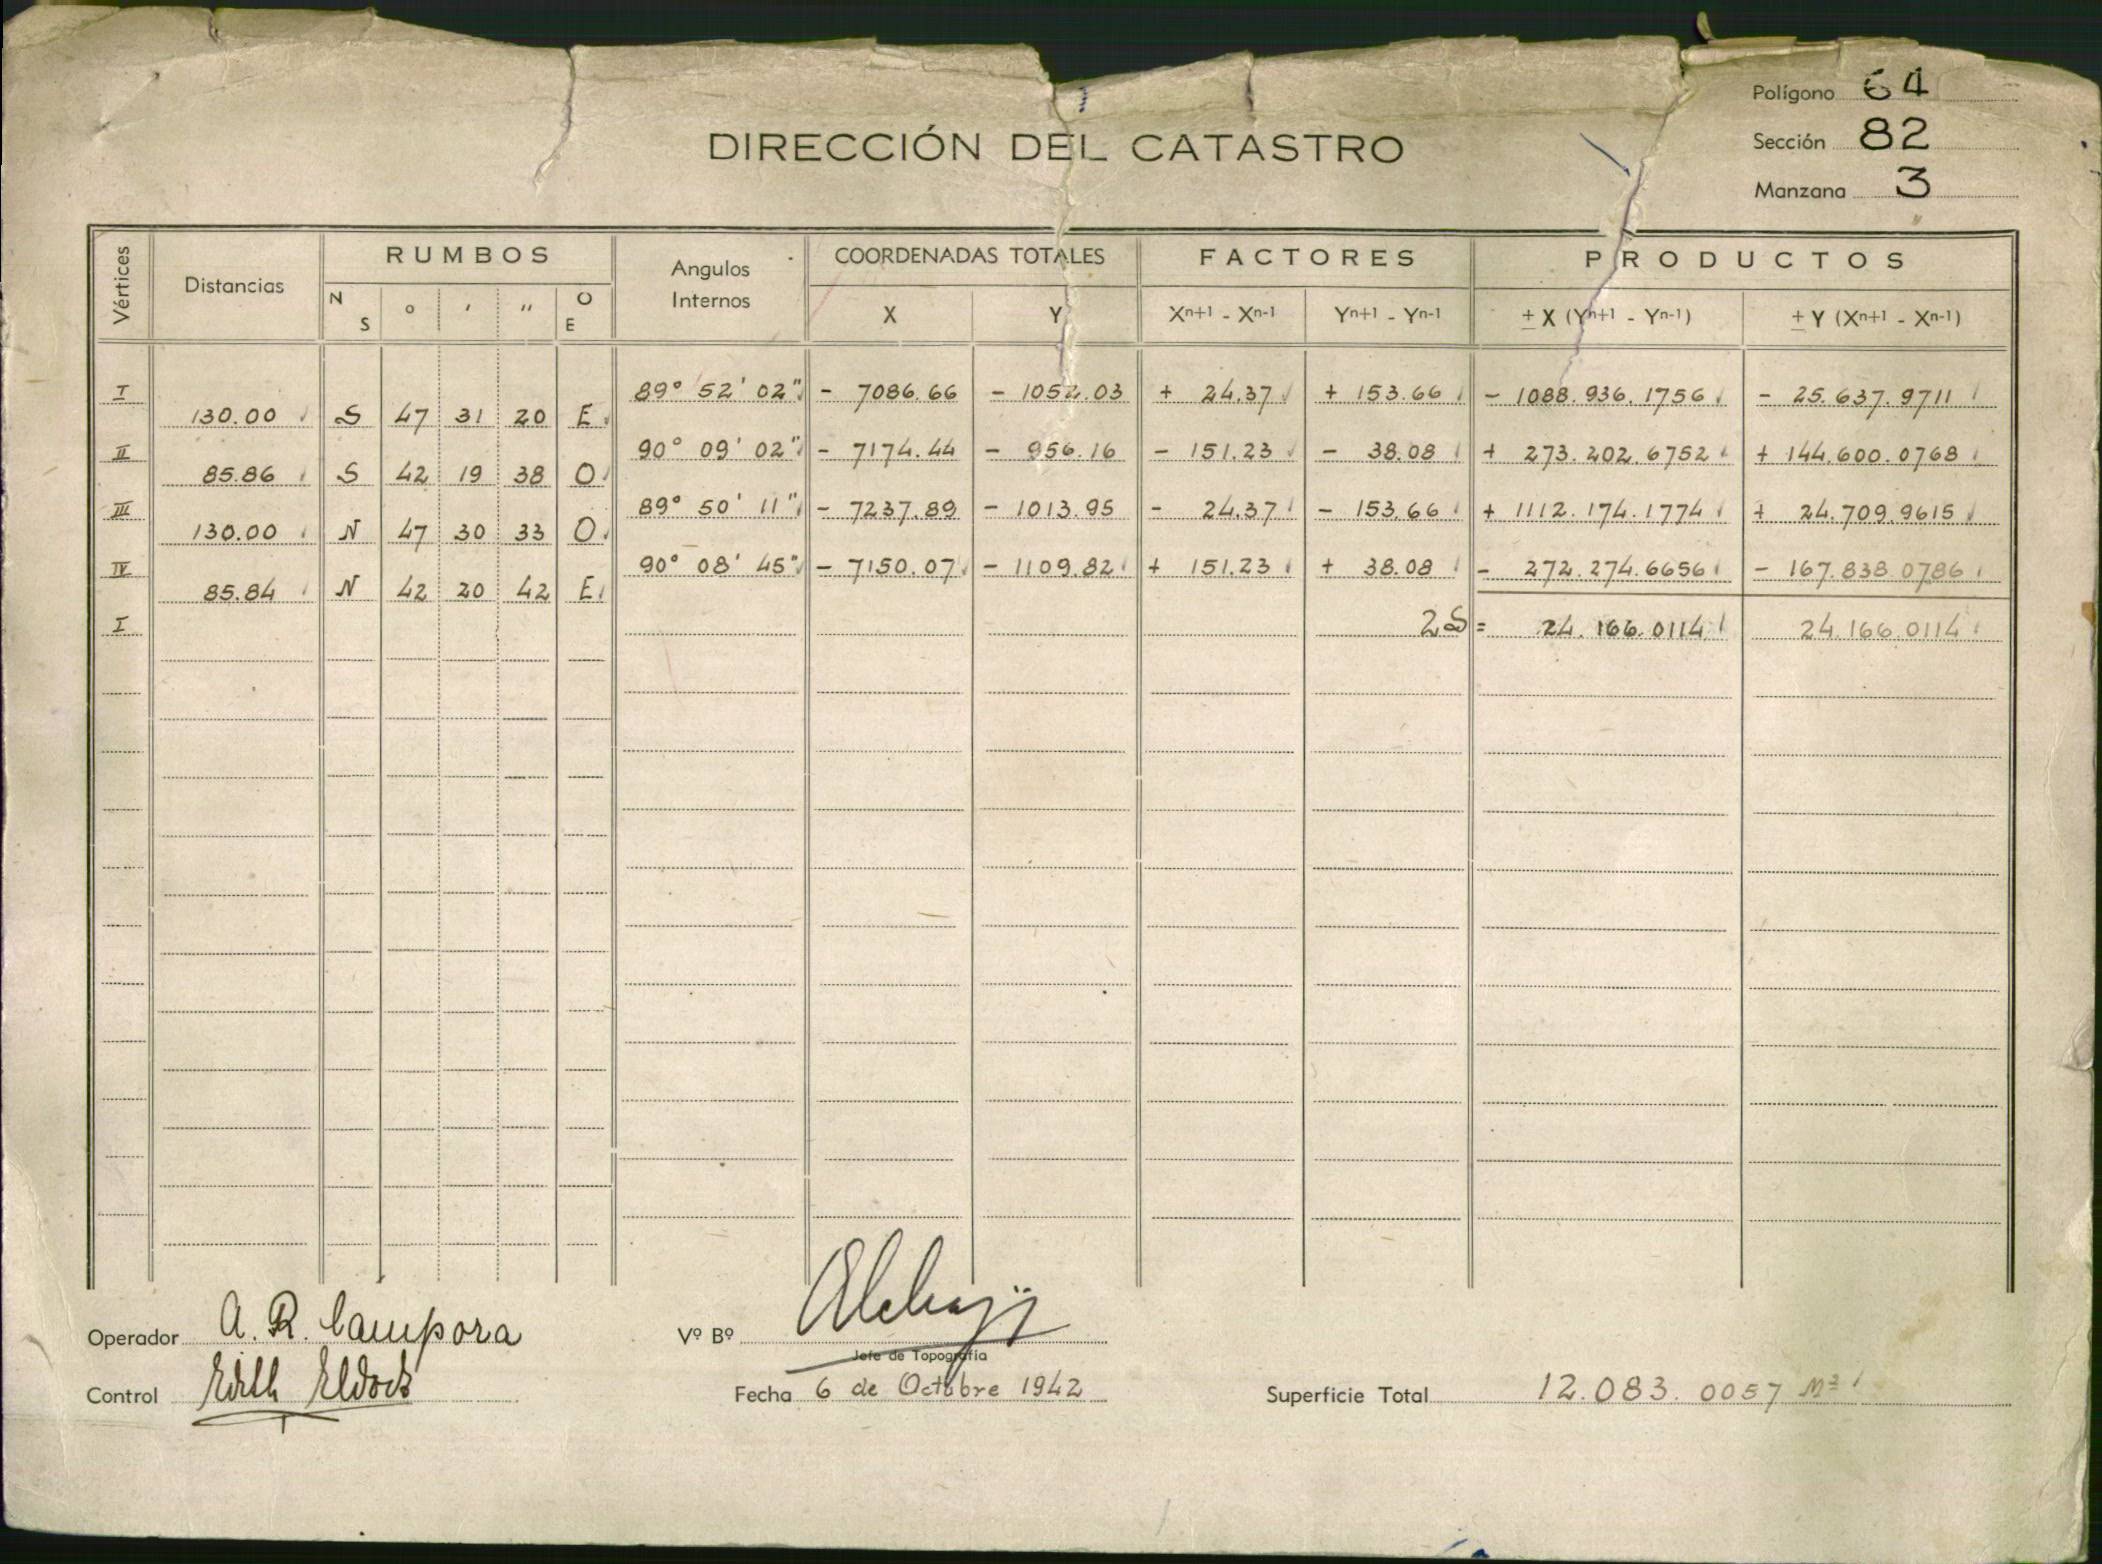 Polígono 64
DIRECCIÓN DEL CATASTRO
Sección 82
Manzana 3
Vértices Distancias RUMBOS Angulos Internos COORDENADAS TOTALES FACTORES PRODUCTOS
N S ° ' " O E X Y Xn+1 - Xn-1 Yn+1 - Yn-1 ± X (Yn+1 - Yn-1) ± Y (Xn+1 - Xn-1)
I 89° 52' 02" - 7086.66 - 1052.03 + 24.37 + 153.66 - 1088.936.1756 - 25.637.9711
130.00 S 47 31 20 E
II 90° 09' 02" - 7174.44 - 956.16 - 151.23 - 38.08 + 273.202.6752 + 144.600.0768
85.86 S 42 19 38 O
III 89° 50' 11" - 7237.89 - 1013.95 - 24.37 - 153.66 + 1112.174.1774 + 24.709.9615
130.00 N 47 30 33 O
IV 90° 08' 45" - 7150.07 - 1109.82 + 151.23 + 38.08 - 272.274.6656 - 167.838.0786
85.84 N 42 20 42 E
I 2S = 24.166.0114 24.166.0114
Operador A. R. Campora Vº Bº
Jefe de Topografía
Control Edith Fecha 6 de Octubre 1942 Superficie Total 12.083.0057 M²